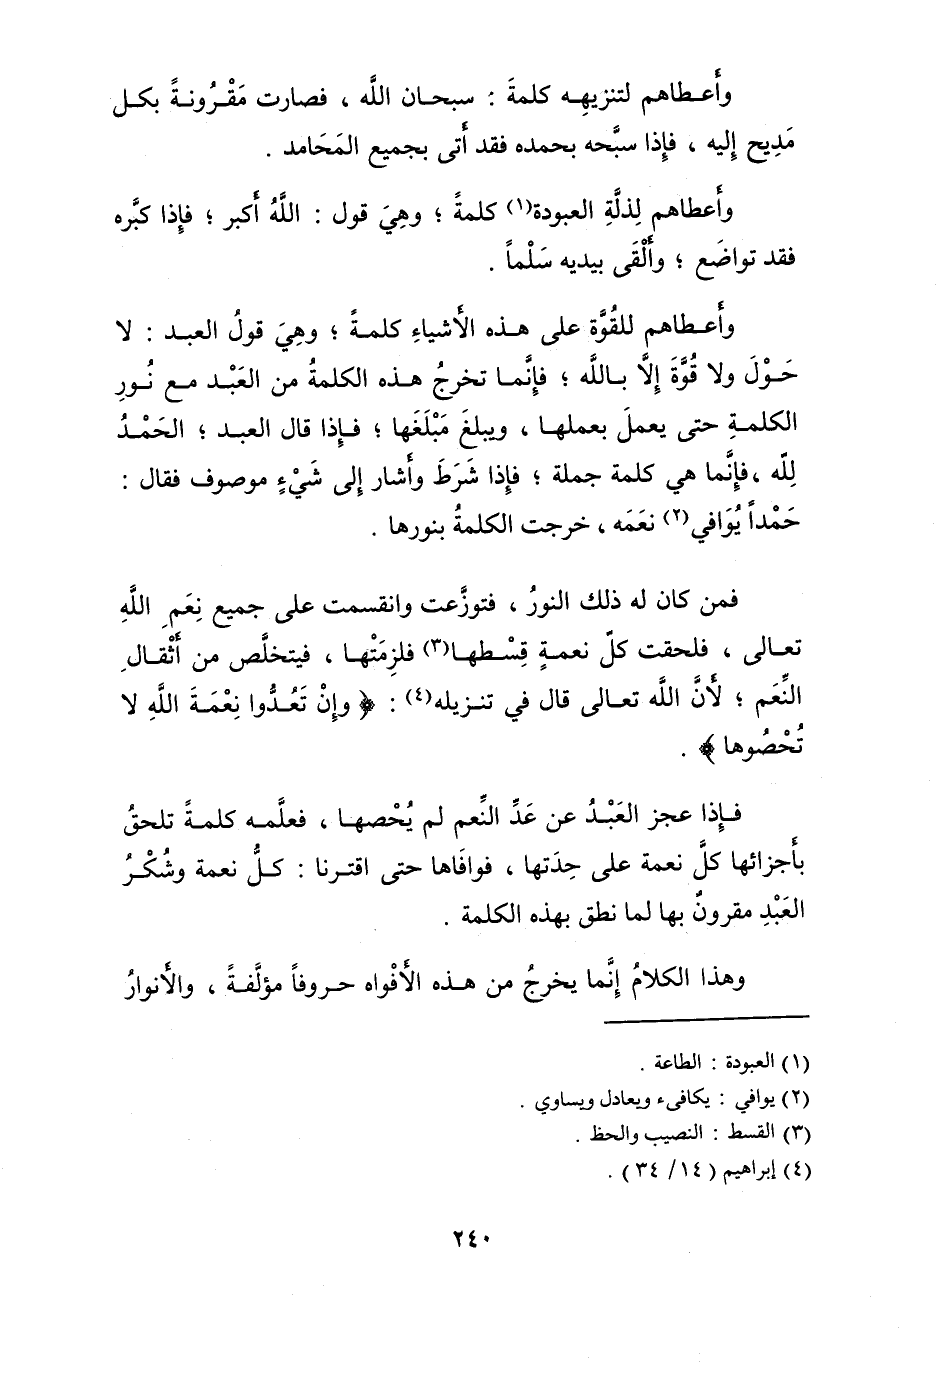 وأَعـطاهم لتنزيهِـه كلمةَ : سبحـان اللَّه ، فصارت مَقْـرُونـةً بكـل
مَدِيح إِليه ، فإِذا سبَّحه بحمده فقد أَتى بجميع المَحَامد .
وأَعطاهم لِذلَّةِ العبودة(١) كلمةً ؛ وهِيَ قول : اللَّهُ أَكبر ؛ فإِذا كبَّره
فقد تواضَع ؛ وأَلْقَى بيديه سَلْماً .
وأَعـطاهم للقُوَّة على هـذه الأَشياءِ كلمةً ؛ وهِيَ قولُ العبـد : لا
حَـوْلَ ولا قُوَّةَ إِلَّا بـاللَّه ؛ فإِنَّمـا تخرجُ هـذه الكلمةُ من العَبْـد مـع نُـورِ
الكلمـةِ حتى يعملَ بعملهـا ، ويبلغَ مَبْلَغَها ؛ فـإِذا قال العبـد ؛ الحَمْـدُ
لِلّه ،فإِنَّما هي كلمة جملة ؛ فإِذا شَرَطَ وأَشار إِلى شَيْءٍ موصوف فقال :
حَمْداً يُوَافي(٢) نعَمَه ، خرجت الكلمةُ بنورها .
فمن كان له ذلك النورُ ، فتوزَّعت وانقسمت على جميع نِعَمِ اللَّهِ
تعـالى ، فلحقت كلّ نعمـةٍ قِسْـطهـا(٣) فلزِمَتْهـا ، فيتخلَّص من أَثْقـالِ
النِّعَم ؛ لأَنَّ اللَّه تعـالى قال في تنـزيله(٤) : ﴿ وإِنْ تَعُـدُّوا نِعْمَـةَ اللَّهِ لا
تُحْصُوها ﴾ .
فـإِذا عجز العَبْـدُ عن عَدِّ النِّعم لم يُحْصهـا ، فعلَّمـه كلمةً تلحقُ
بأَجزائها كلَّ نعمة على حِدَتها ، فوافَاها حتى اقتـرنا : كـلُّ نعمة وشُكْـرُ
العَبْدِ مقرونٌ بها لما نطق بهذه الكلمة .
وهذا الكلامُ إِنَّما يخرجُ من هـذه الأَفْواه حـروفاً مؤلَّفـةً ، والأَنوارُ
(١) العبودة : الطاعة .
(٢) يوافي : يكافىء ويعادل ويساوي .
(٣) القسط : النصيب والحظ .
(٤) إبراهيم ( ١٤/ ٣٤ ) .
٢٤٠